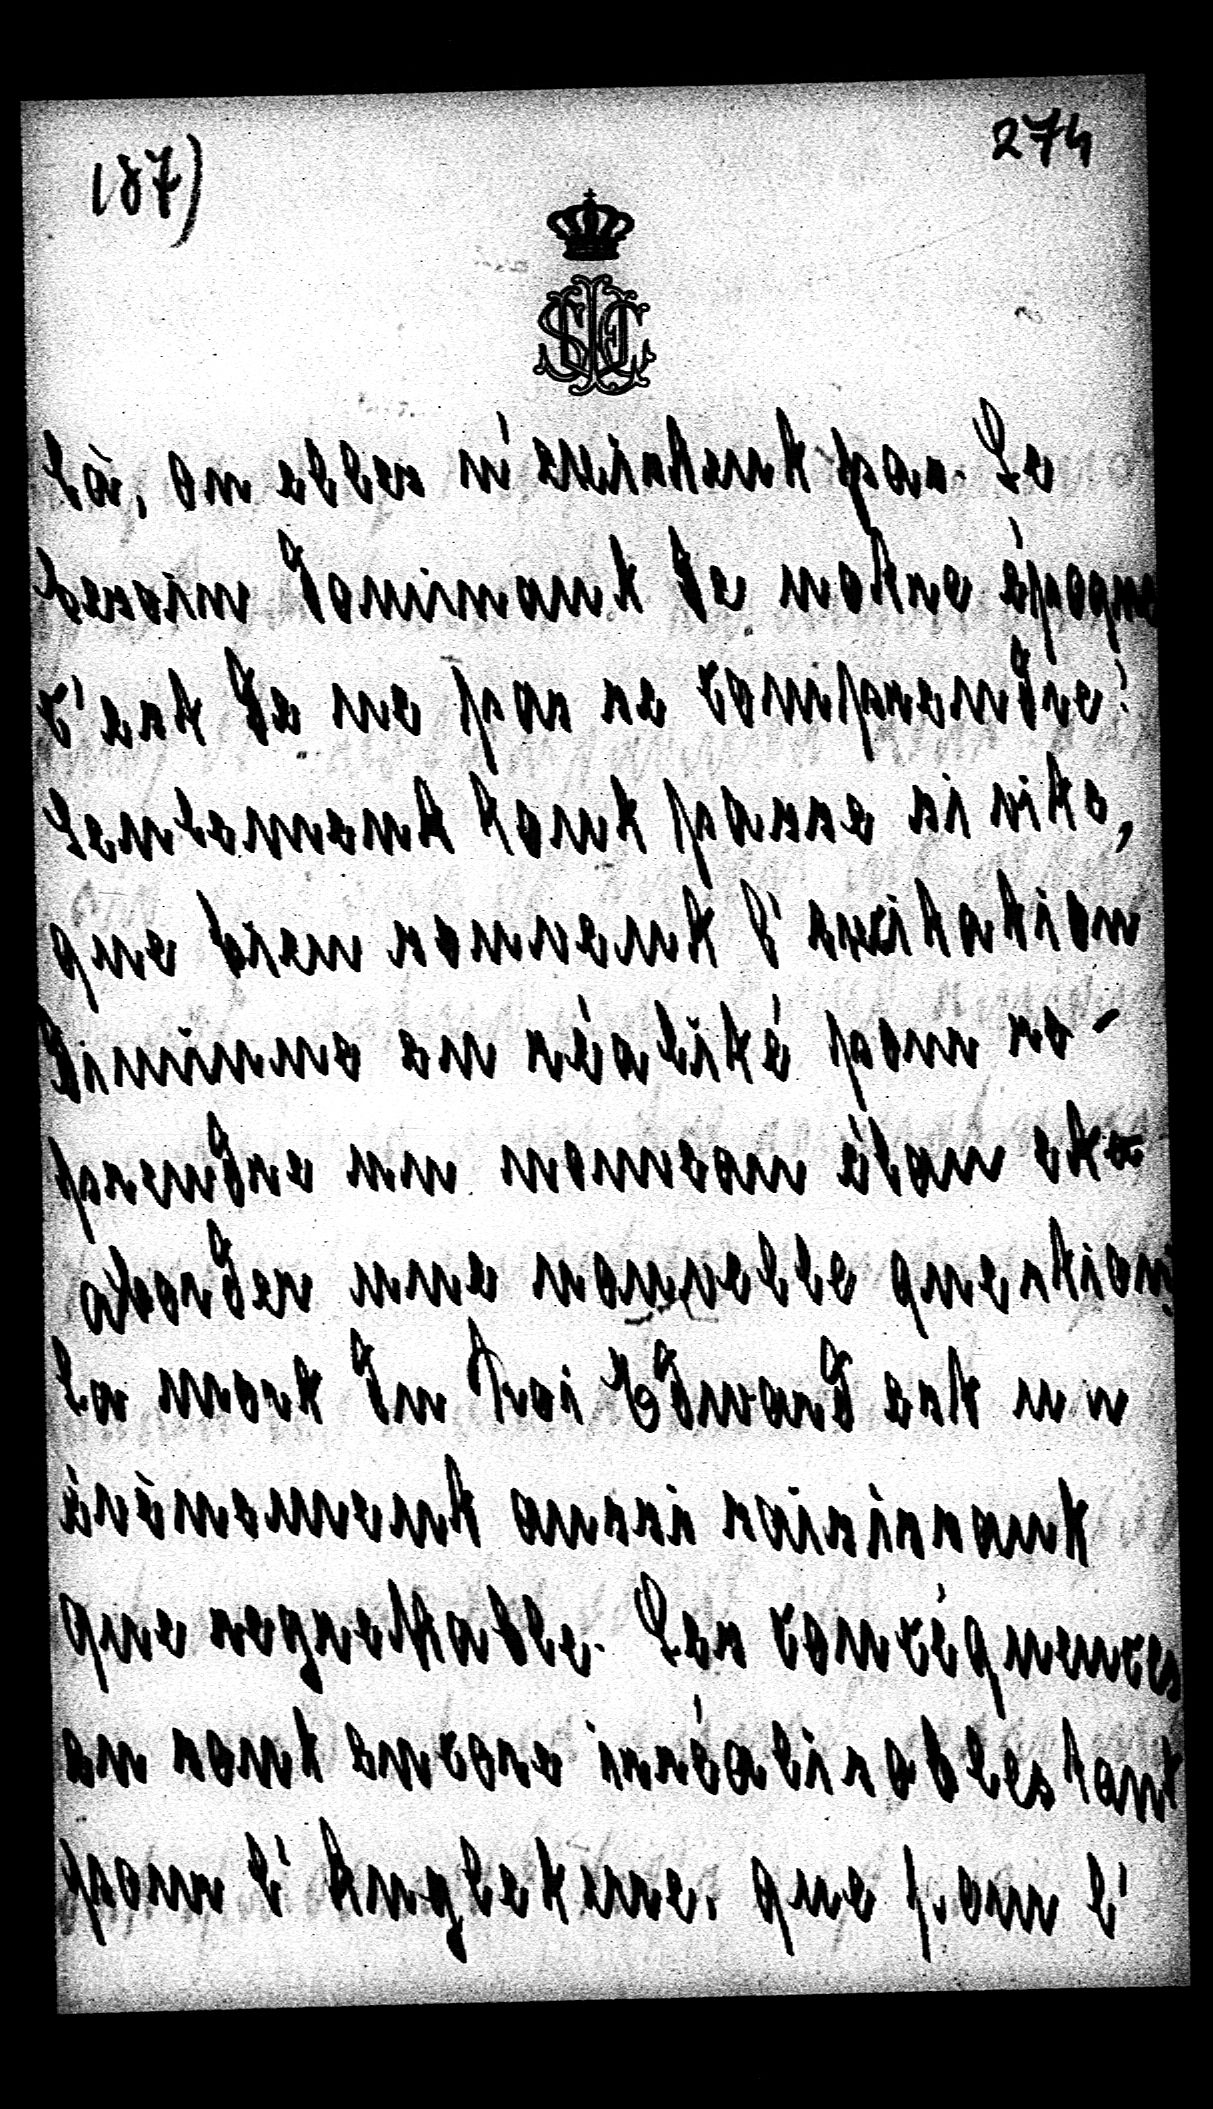 187)
274
là, ou elles n'existent pas. Le
besoin dominant de notre époque
c'est de ne pas se comprendre!
Seulement tout passe si vite,
que bien souvent l'excitation
diminue en réalité pour re-
prendre un nouveau élan et
aborder une nouvelle question;
La mort du Roi Edward est un
évènement aussi saisissant
que regrettable. Les conséquences
en sont encore incalculables tant
pour l'Angleterre, que pour l'